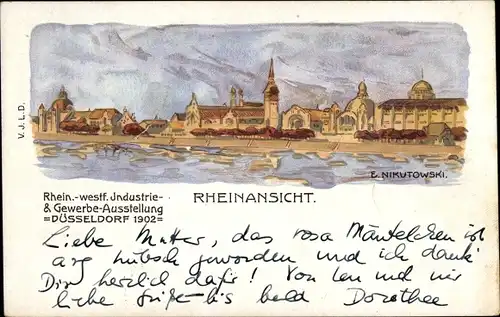 V.J.L.D.
E. NIKUTOWSKI.
Rhein.-westf. Jndustrie-
& Gewerbe-Ausstellung
=DÜSSELDORF 1902=
RHEINANSICHT.
Liebe Mutter, das rosa Mäntelchen ist
arg hübsch geworden und ich dank'
Dir herzlich dafür! Von Leu und mir
liebe Grüße bis bald Dorothee